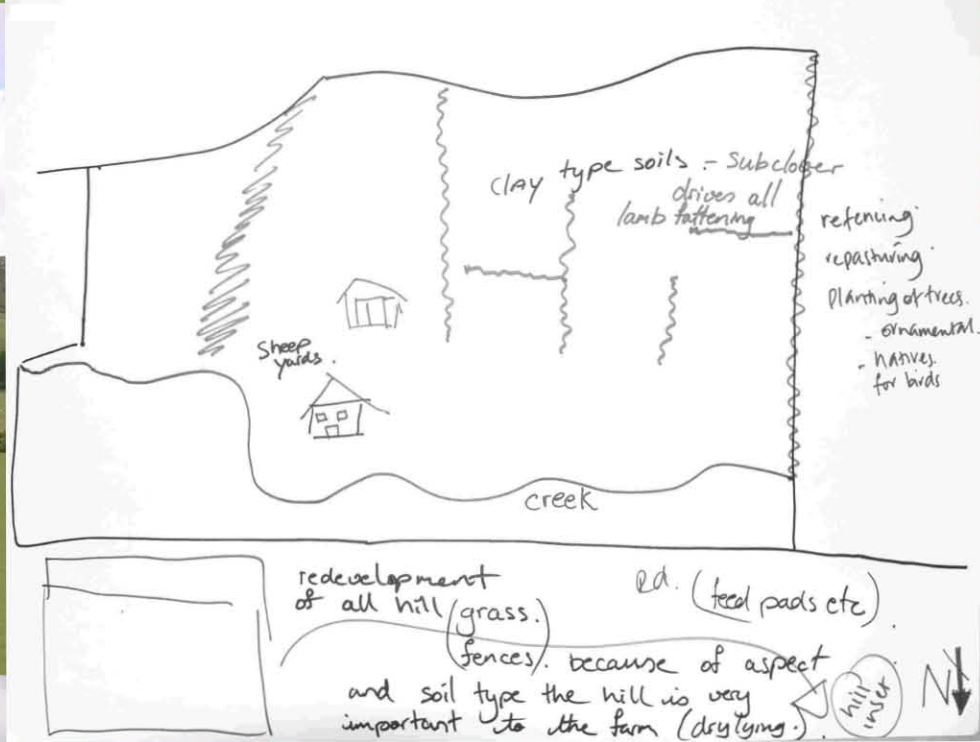 clay type soils - Subclover
drives all
lamb fattening
refencing
repasturing
Planting of trees.
- ornamental.
- natives.
for birds
Sheep
yards.
creek
redevelopment
of all hill (grass.
fences).
because of aspect
and soil type the hill is very
important to the farm (drylying.)
Rd. (feed pads etc).
hill
inset
N